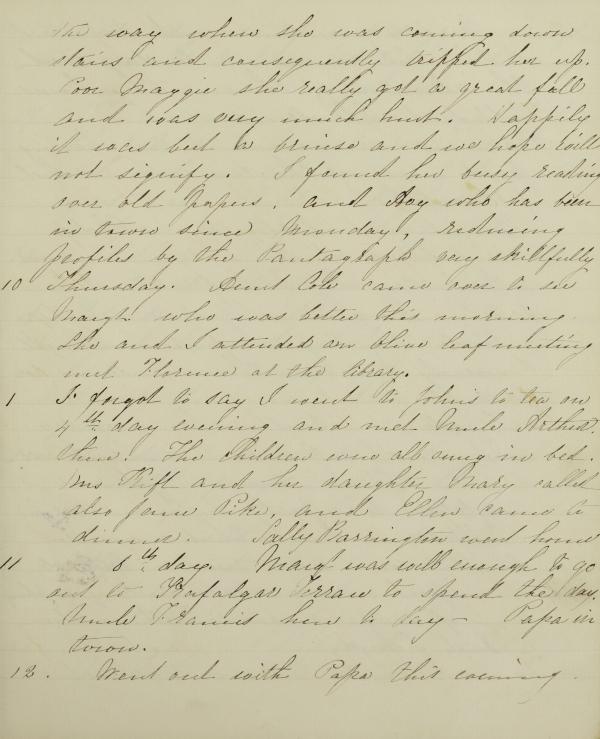 the way when she was coming down
stairs and consequently tripped her up.
Poor Maggie she really got a great fall
and was very much hurt. Happily
it was but a bruise and we hope will
not signify. I found her busy reading
over old papers, and Amy who has been
in town since Monday, reducing
profiles by the Pantagraph very skillfully
10 Thursday. Aunt Cole came over to see
Margt. who was better this morning
She and I attended an Olive leaf meeting
met Florence at the library.
1 I forgot to say I went to John's to tea on
4th day evening and met Uncle Arthur
there. The Children were all snug in bed.
Mrs Clift and her daughter Mary called
also Jane Pike, and Ellen came to
dinner. Sally Barrington went home
11 6th day. Margt was well enough to go
out to Trafalgar Terrace to spend the day,
Uncle Francis here to day — Papa in
town.
12. Went out with Papa this evening.